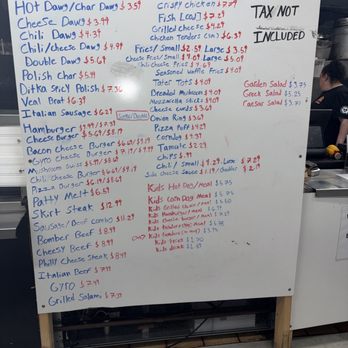 Hot Dawg/Char Dawg $3.59
Cheese Dawg $3.99
Chili Dawg $4.39
Chili/Cheese Dawg $4.99
Double Dawg $5.69
Polish Char $5.99
Ditka Spicy Polish $7.36
Veal Brat $6.39
Italian Sausage $6.29
Hamburger
Cheese Burger $5.69/$8.19
Bacon Cheese Burger
Gyro Cheese Burger
Mushroom
Chili Cheese Burger
Pizza Burger $6.19/$8.69
Patty Melt $6.69
Skirt Steak $12.99
Sausage/Beef Combo $11.29
Bomber Beef $8.99
Cheesy Beef $8.49
Philly Cheese Steak $8.49
Italian Beef $7.99
Gyro $7.49
Grilled Salami $7.39
Crispy Chicken $7.09
Fish (Cod) $7.29
Grilled Cheese $4.29
Chicken Tenders (3p) $6.39
Fries/Small $2.59 Large $3.59
Cheese Fries/Small $4.09 Large $5.09
Chili Cheese Fries
Seasoned Waffle Fries $4.09
Tater Tots $4.09
Breaded Mushroom $4.09
Mozzarella Sticks $4.09
Cheese Curds $3.69
Onion Ring $3.69
Pizza Puff $4.29
Corndog $3.39
Tamale $2.29
Chips $.99
Chili/Small $4.29 Large $7.29
Side Cheese Sauce $1.19/Double $2.19
Kids Hot Dog/Meal $5.75
Kids Corn Dog/Meal $5.75
Kids Grilled Cheese/Meal
Kids Hamburger/Meal
Kids Cheese Burger/Meal
Kids Tenders
Kids Tenders
Kids Fries $1.50
Kids Drink
TAX NOT
INCLUDED
Garden Salad $3.75
Greek Salad $5.25
Caesar Salad